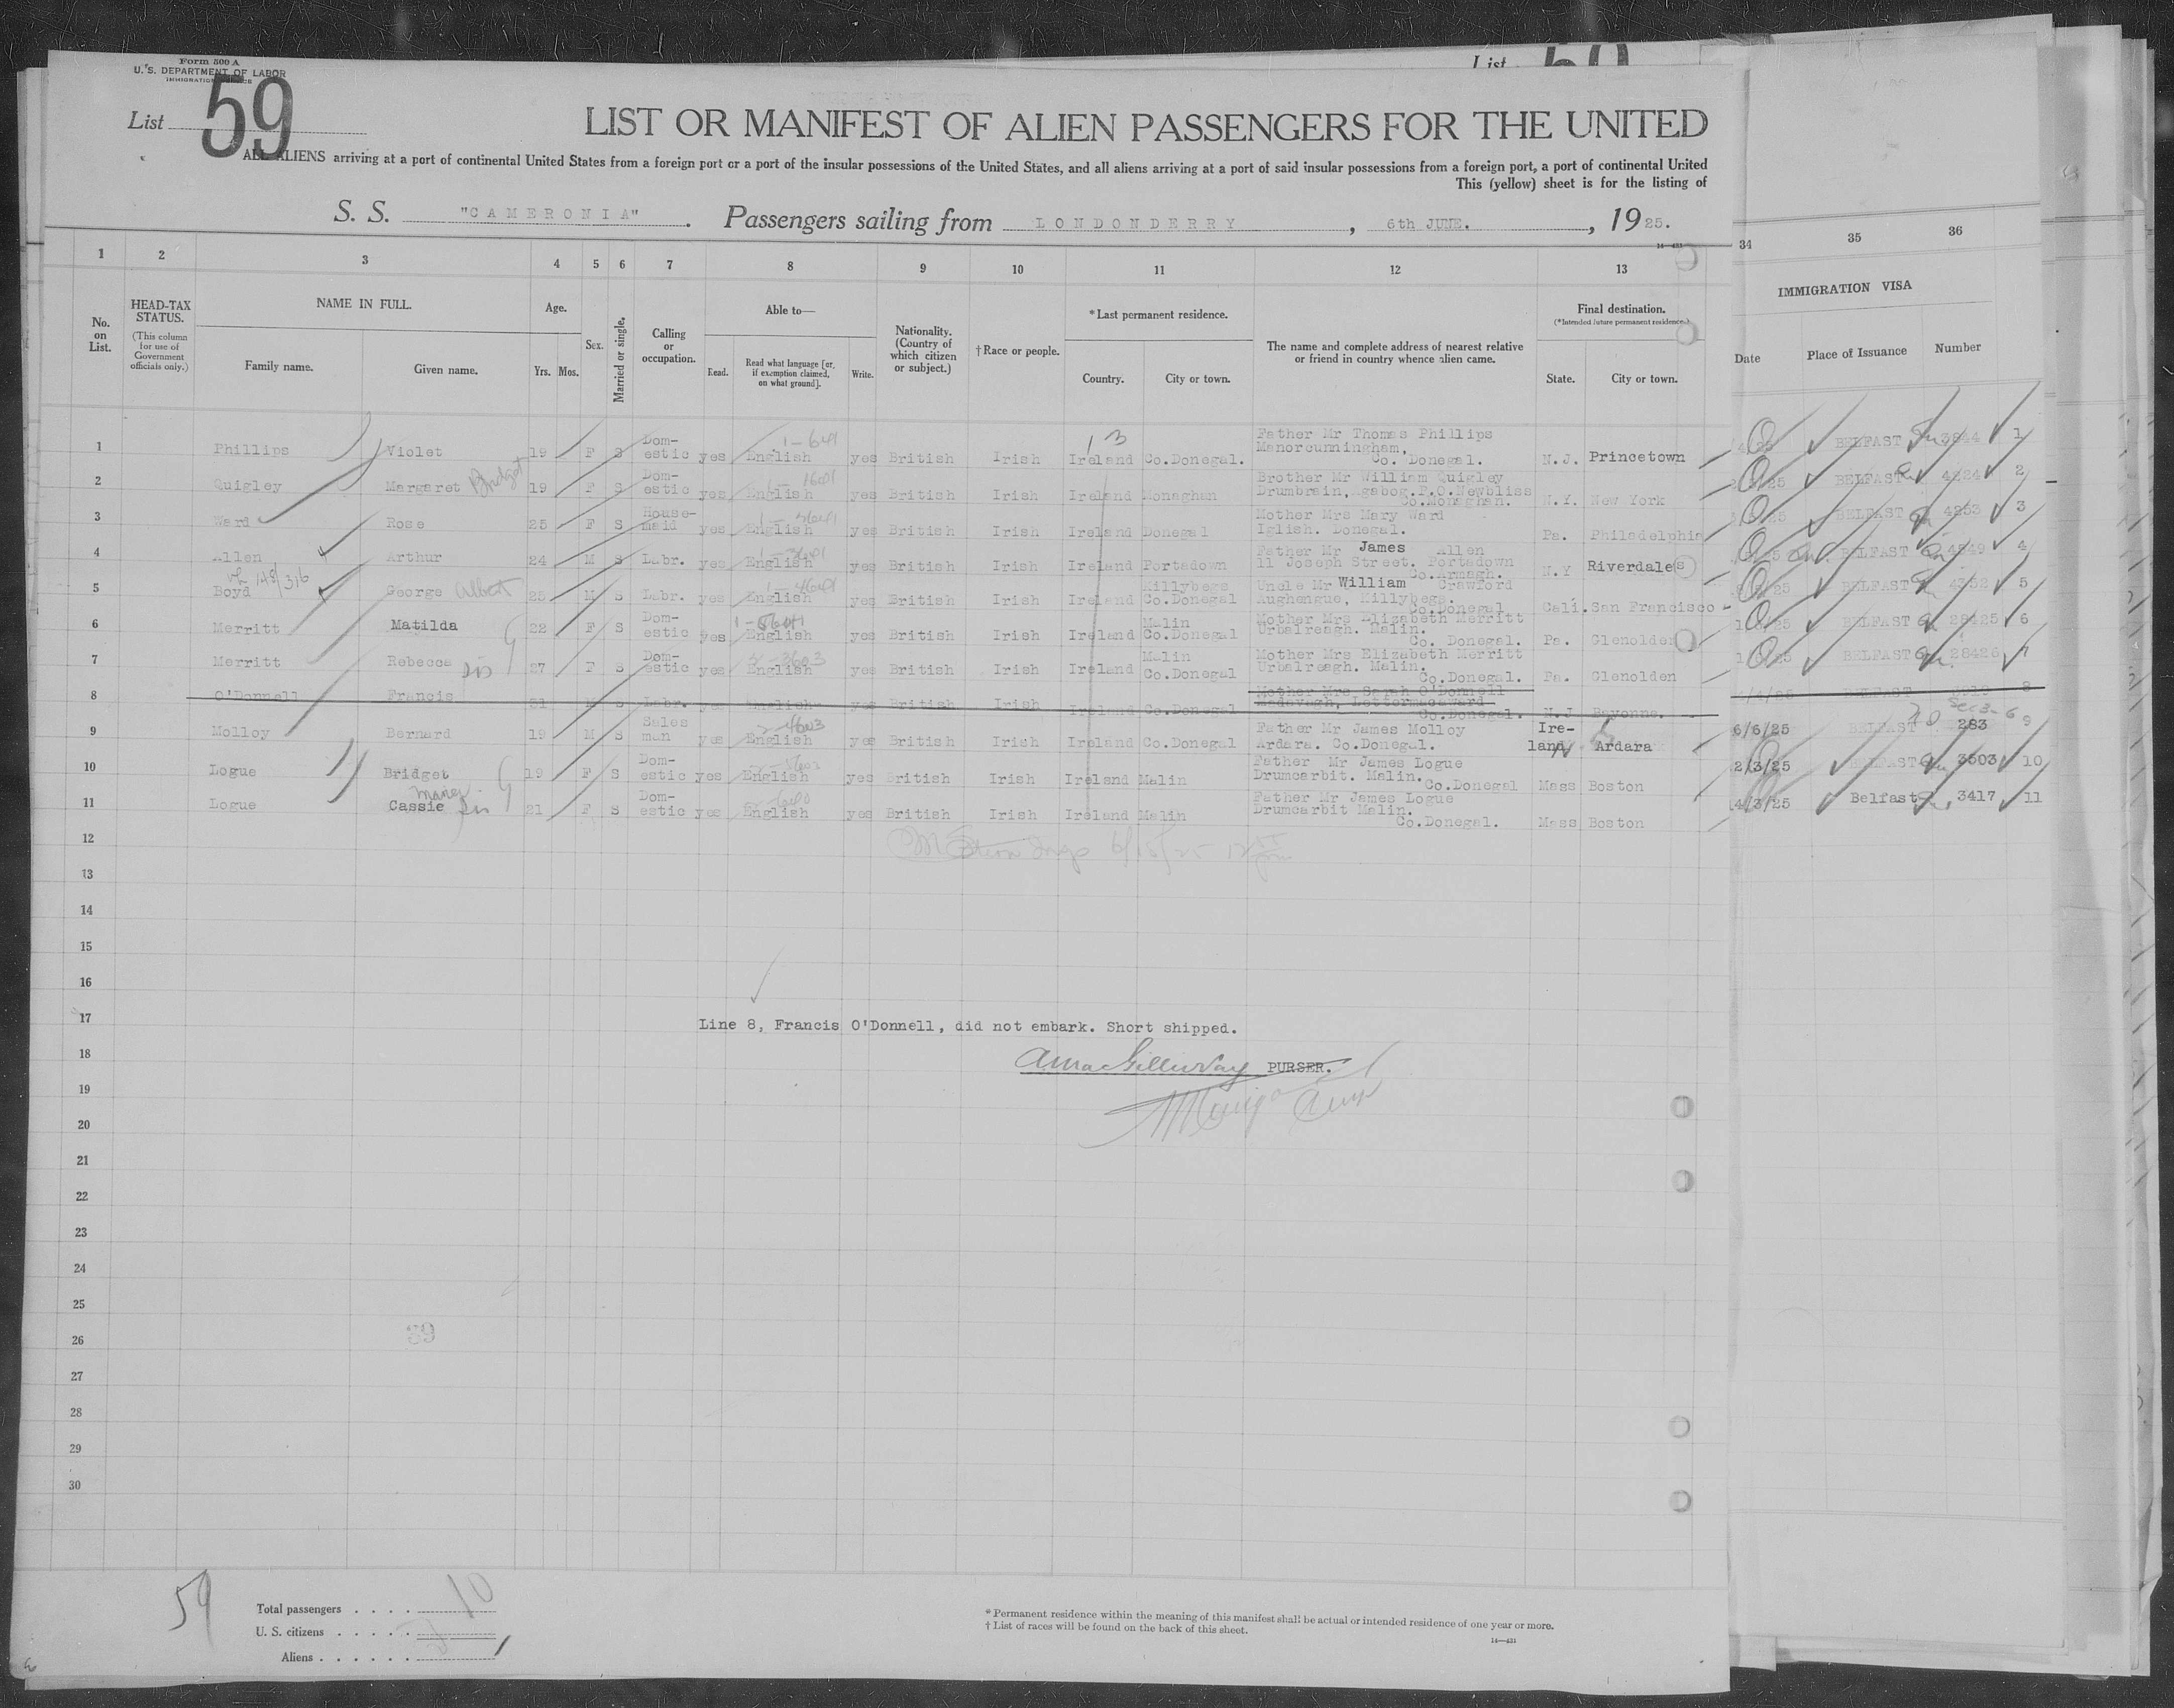 Form 500 A
U. S. DEPARTMENT OF LABOR
IMMIGRATION SERVICE
List 59
List
LIST OR MANIFEST OF ALIEN PASSENGERS FOR THE UNITED
ALL ALIENS arriving at a port of continental United States from a foreign port or a port of the insular possessions of the United States, and all aliens arriving at a port of said insular possessions from a foreign port, a port of continental United
This (yellow) sheet is for the listing of
S. S. "CAMERONIA". Passengers sailing from LONDONDERRY, 6th JUNE., 1925.
1 2 3 4 5 6 7 8 9 10 11 12 13 34 35 36
No. on List.
HEAD-TAX STATUS. (This column for use of Government officials only.)
NAME IN FULL. Family name. Given name.
Age. Yrs. Mos.
Sex.
Married or single.
Calling or occupation.
Able to— Read. Read what language [or, if exemption claimed, on what ground]. Write.
Nationality. (Country of which citizen or subject.)
† Race or people.
* Last permanent residence. Country. City or town.
The name and complete address of nearest relative or friend in country whence alien came.
Final destination. (*Intended future permanent residence.) State. City or town.
IMMIGRATION VISA
Date Place of Issuance Number
1 Phillips Violet 19 F S Dom-estic yes English yes British Irish Ireland Co.Donegal. Father Mr Thomas Phillips Manorcunningham, Co. Donegal. N.J. Princetown BELFAST 3844 1
2 Quigley Margaret Bridget 19 F S Dom-estic yes English yes British Irish Ireland Monaghan Brother Mr William Quigley Drumbrain, Agabog.P.O.Newbliss Co.Monaghan. N.Y. New York BELFAST 4224 2
3 Ward Rose 25 F S House-maid yes English yes British Irish Ireland Donegal Mother Mrs Mary Ward Iglish. Donegal. Pa. Philadelphia BELFAST 4253 3
4 Allen Arthur 24 M S Labr. yes English yes British Irish Ireland Portadown Father Mr James Allen 11 Joseph Street. Portadown Co.Armagh. N.Y Riverdales BELFAST 4549 4
5 Boyd George Albert 25 M S Labr. yes English yes British Irish Ireland Killybegs Co.Donegal Uncle Mr William Crawford Aughengue, Killybegs. Co.Donegal Cali. San Francisco BELFAST 4352 5
6 Merritt Matilda 22 F S Dom-estic yes English yes British Irish Ireland Malin Co.Donegal Mother Mrs Elizabeth Merritt Urbalreagh. Malin. Co. Donegal. Pa. Glenolden BELFAST 28425 6
7 Merritt Rebecca sis 27 F S Dom-estic yes English yes British Irish Ireland Malin Co.Donegal Mother Mrs Elizabeth Merritt Urbalreagh. Malin. Co.Donegal. Pa. Glenolden BELFAST 28426 7
8 O'Donnell Francis 31 M S Labr. yes English yes British Irish Ireland Co.Donegal Mother Mrs. Sarah O'Donnell Lettermacaward Co.Donegal. N.J Bayonne. BELFAST 8
9 Molloy Bernard 19 M S Sales man yes English yes British Irish Ireland Co.Donegal Father Mr James Molloy Ardara. Co.Donegal. Ire-land Ardara 6/6/25 BELFAST 283 9
10 Logue Bridget 19 F S Dom-estic yes English yes British Irish Ireland Malin Father Mr James Logue Drumcarbit. Malin. Co.Donegal Mass Boston 2/3/25 BELFAST 3503 10
11 Logue Cassie sis 21 F S Dom-estic yes English yes British Irish Ireland Malin Father Mr James Logue Drumcarbit Malin. Co.Donegal. Mass Boston 4/3/25 Belfast 3417 11
12
13
14
15
16
17
Line 8, Francis O'Donnell, did not embark. Short shipped.
18
PURSER.
19
20
21
22
23
24
25
26
27
28
29
30
59
Total passengers . . . . 10
U. S. citizens . . . . .
Aliens . . . . . .
* Permanent residence within the meaning of this manifest shall be actual or intended residence of one year or more.
† List of races will be found on the back of this sheet.
14—431